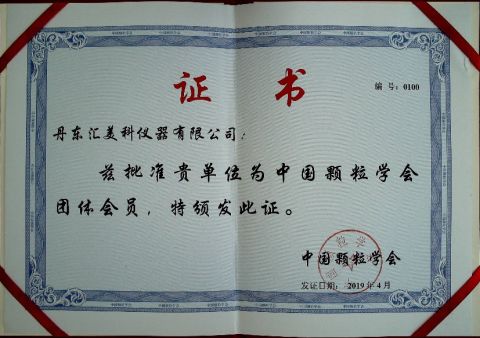 证 书
编 号：0100
丹东汇美科仪器有限公司：
兹批准贵单位为中国颗粒学会
团体会员，特颁发此证。
中国颗粒学会
发证日期： 2019 年 4 月